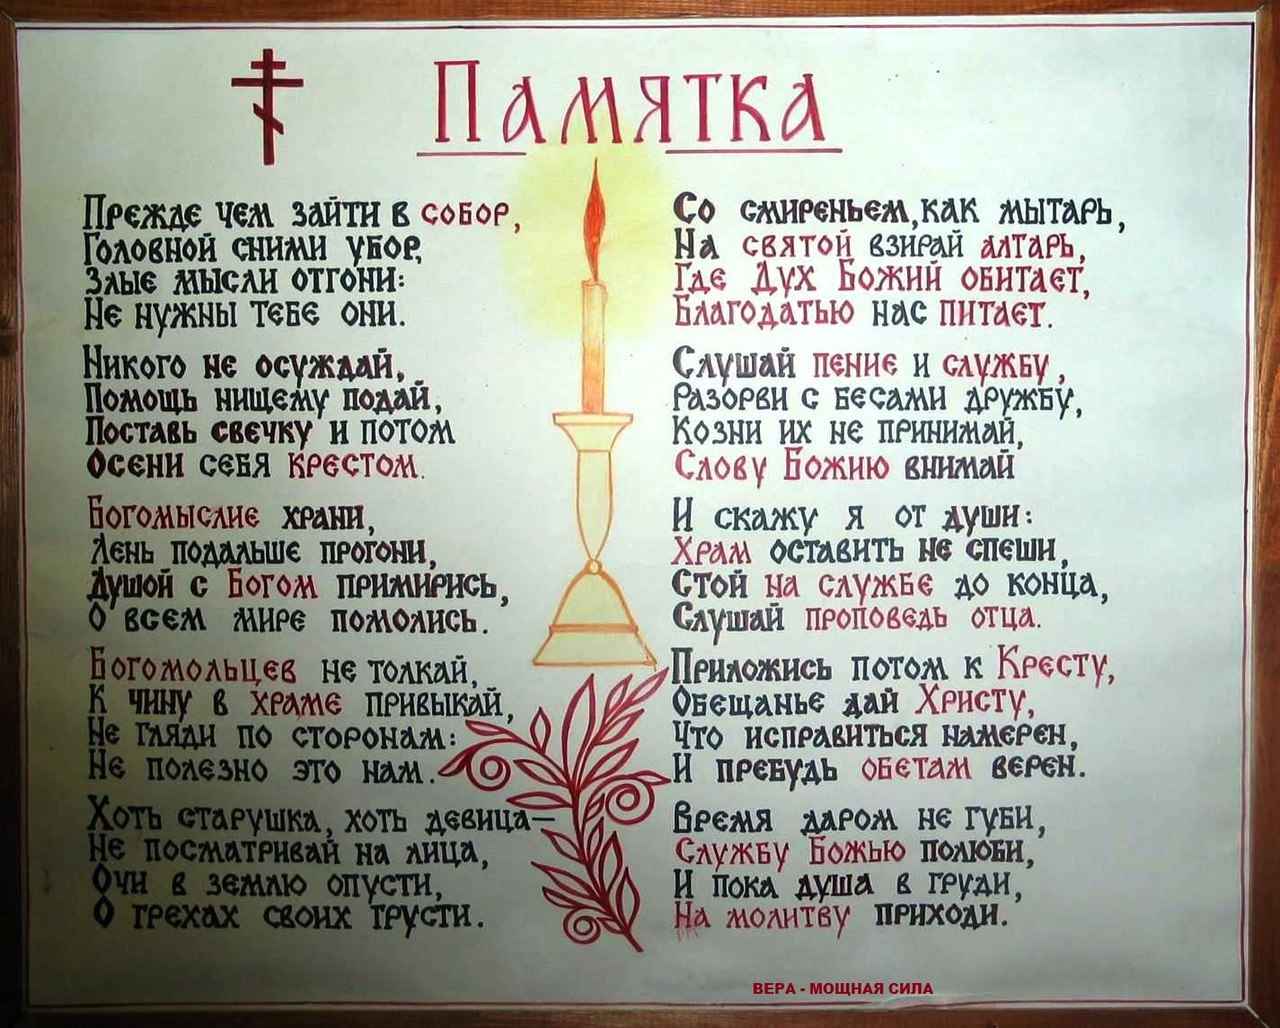 Памятка
Прежде чем зайти в собор,
Головной сними убор,
Злые мысли отгони:
Не нужны тебе они.
Никого не осуждай,
Помощь нищему подай,
Поставь свечку и потом
Осени себя крестом.
Богомыслие храни,
Лень подальше прогони,
Душой с Богом примирись,
О всем мире помолись.
Богомольцев не толкай,
К чину в храме привыкай,
Не гляди по сторонам:
Не полезно это нам.
Хоть старушка, хоть девица—
Не посматривай на лица,
Очи в землю опусти,
О грехах своих грусти.
Со смиреньем, как мытарь,
На святой взирай алтарь,
Где Дух Божий обитает,
Благодатью нас питает.
Слушай пение и службу,
Разорви с бесами дружбу,
Козни их не принимай,
Слову Божию внимай
И скажу я от души:
Храм оставить не спеши,
Стой на службе до конца,
Слушай проповедь отца.
Приложись потом к Кресту,
Обещанье дай Христу,
Что исправиться намерен,
И пребудь обетам верен.
Время даром не губи,
Службу Божью полюби,
И пока душа в груди,
На молитву приходи.
ВЕРА - МОЩНАЯ СИЛА